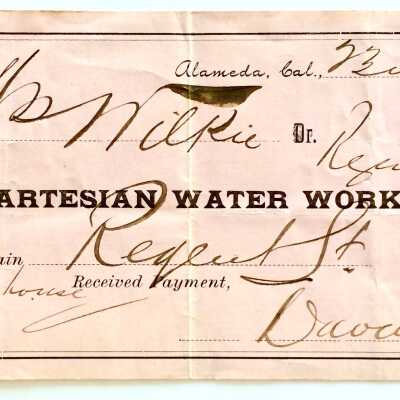 Alameda, Cal.,
Wilkie Dr.
ARTESIAN WATER WORK
ain Regent St
house Received Payment,